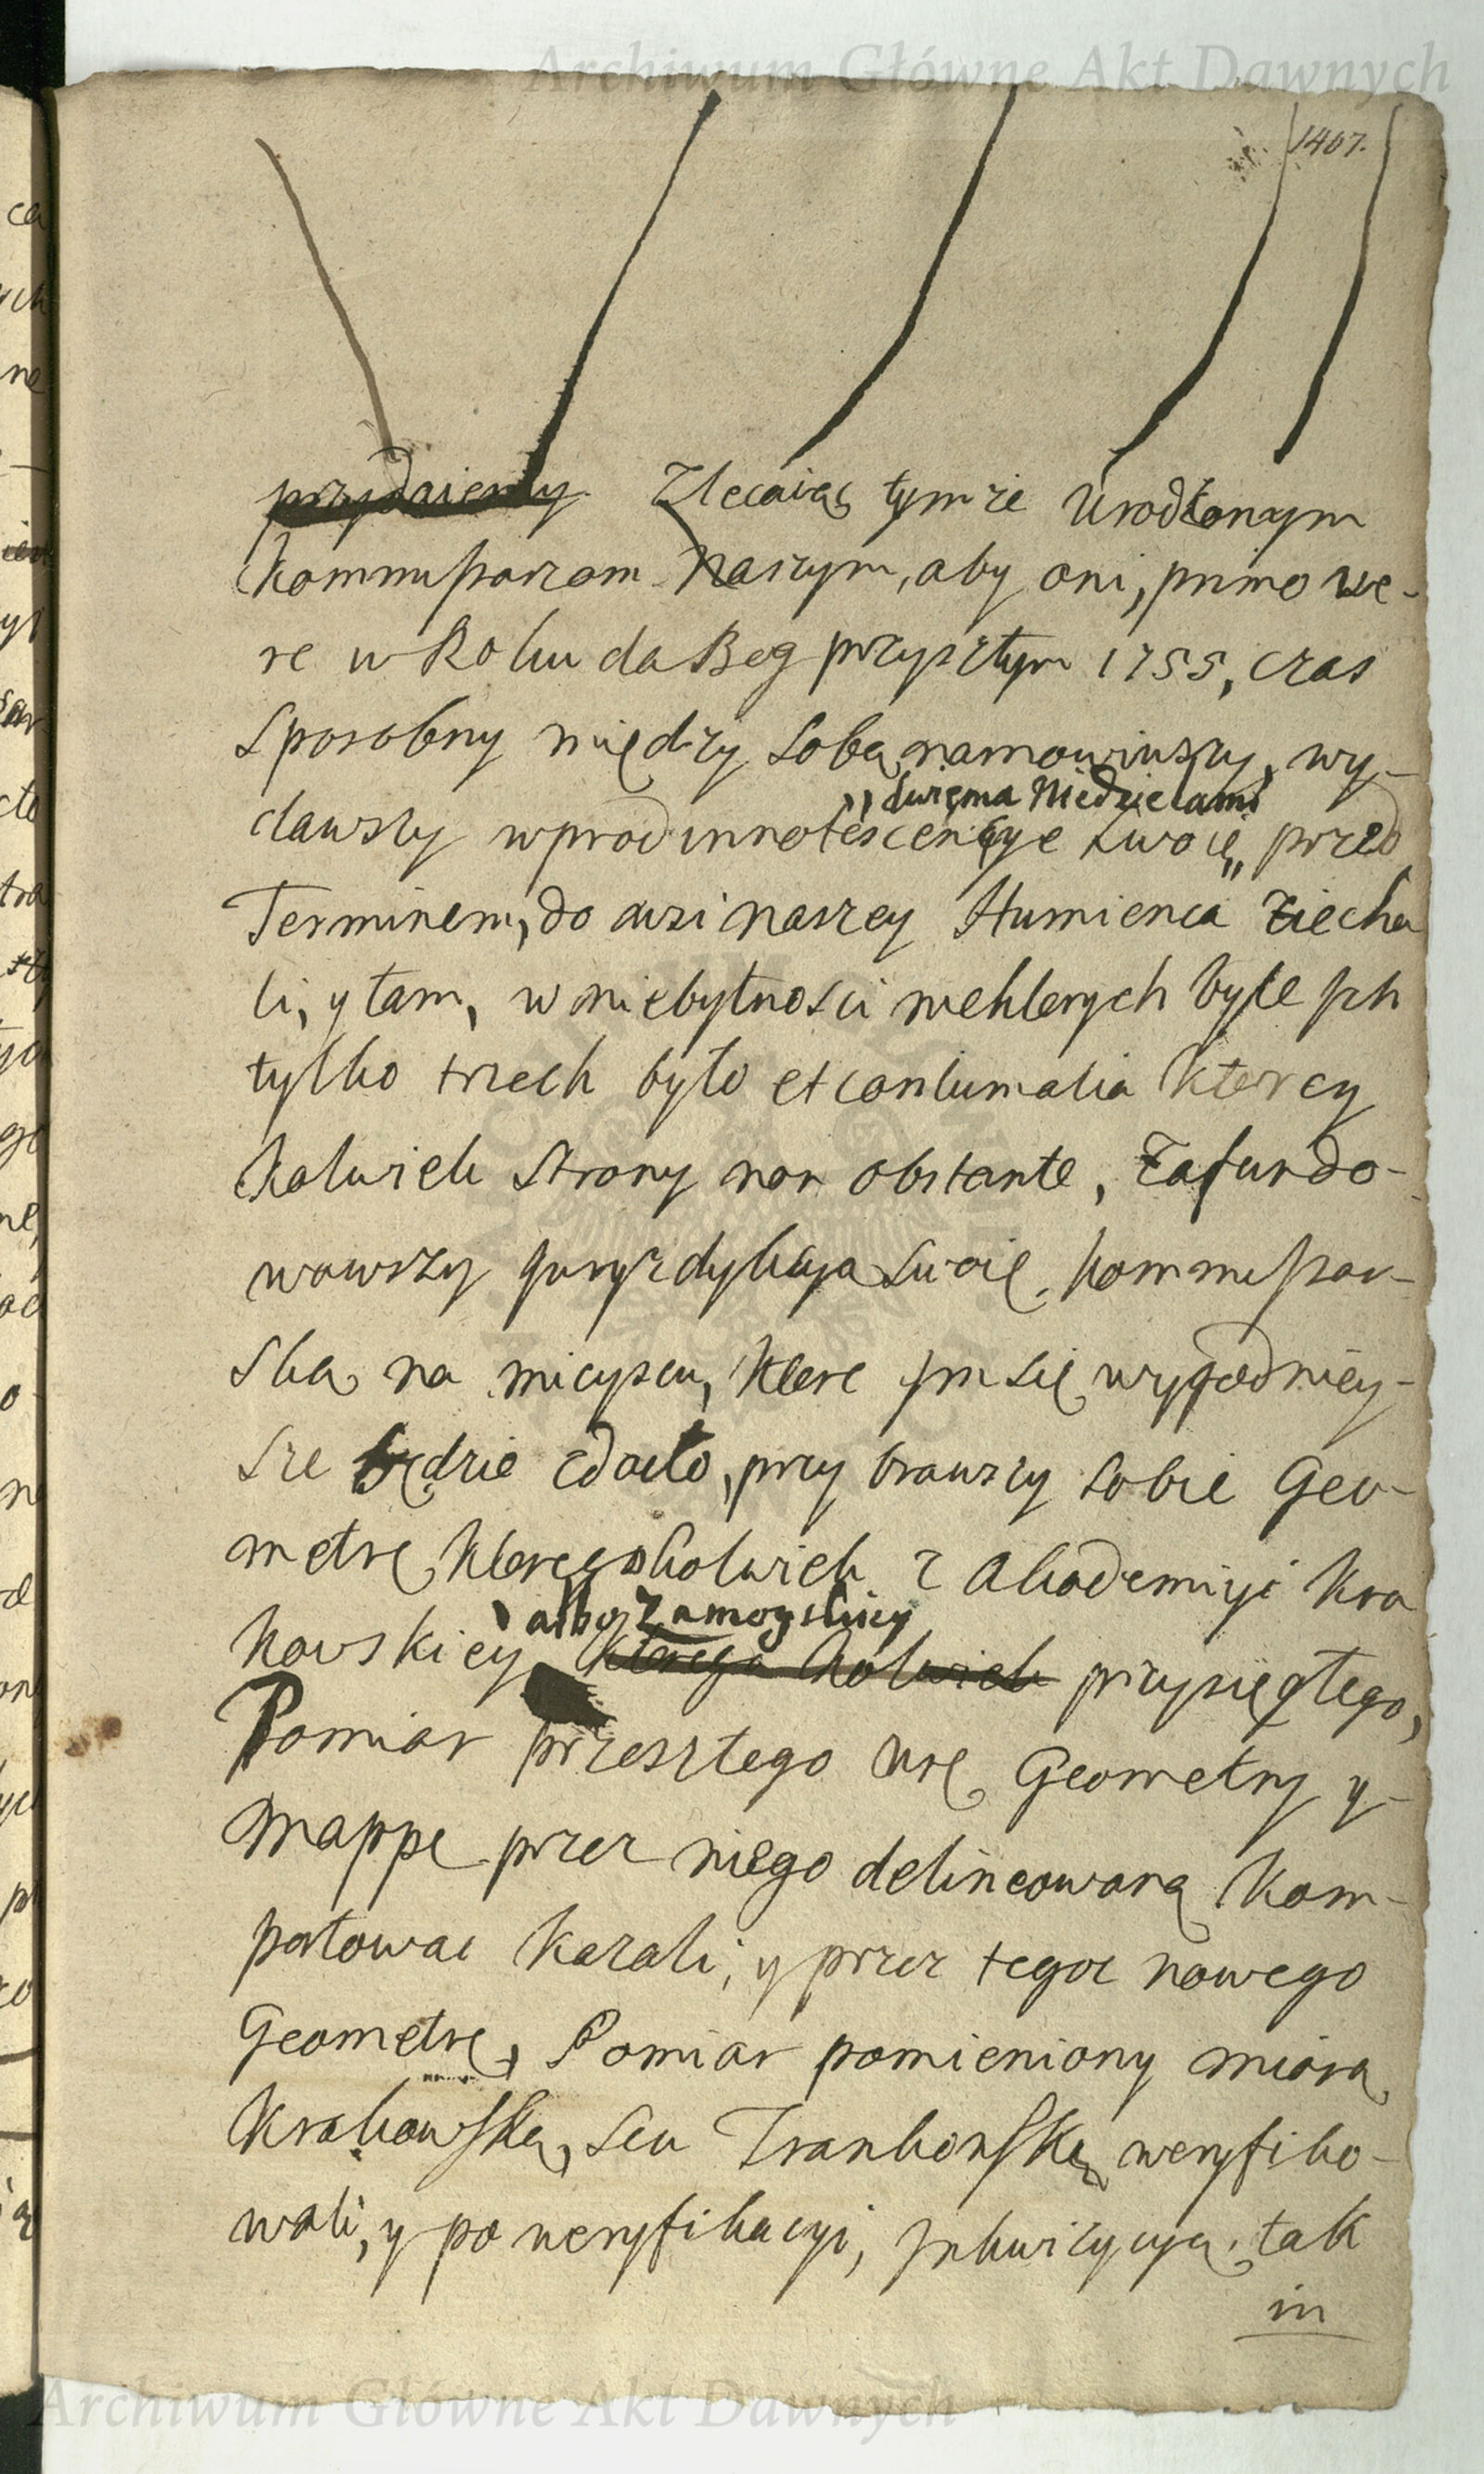 Archiwum Główne Akt Dawnych
1407.
przydaiemy Zlecaiąc tymże Urodzonym
Kommissarzom Naszym, aby oni, primo ve-
re w Roku da Bog przyszłym 1755, czas
sposobny między sobą namowiwszy, wy-
„dwięma Niedzielami
dawszy wprod innotescencye swoię„ przed
Terminem, do wsi naszey Humienca ziecha
li, y tam, w niebytnosci niektorych byle ich
tylko trzech było et contumatia ktorey
kolwiek strony non obstante, zafundo-
wawszy Juryzdykcyą swoię Kommissar-
ską na mieyscu, ktore im się wygodniey-
sze będzie zdało, przybrawszy sobie Geo-
metrę ktoregokolwiek z Akademiyi Kra
albo Zamoyskiey
kowskiey ktorego kolwiek przysięgłego,
Pomiar przeszłego Geometry y
Mappę przez niego delineowaną Kom-
portowac kazali, y przez tegoż nowego
Geometrę, Pomiar pomieniony miarą
Krakowską, seu Frankonską weryfiko-
wali, y po weryfikacyi, Inkwizycyą, tak
in
Archiwum Główne Akt Dawnych